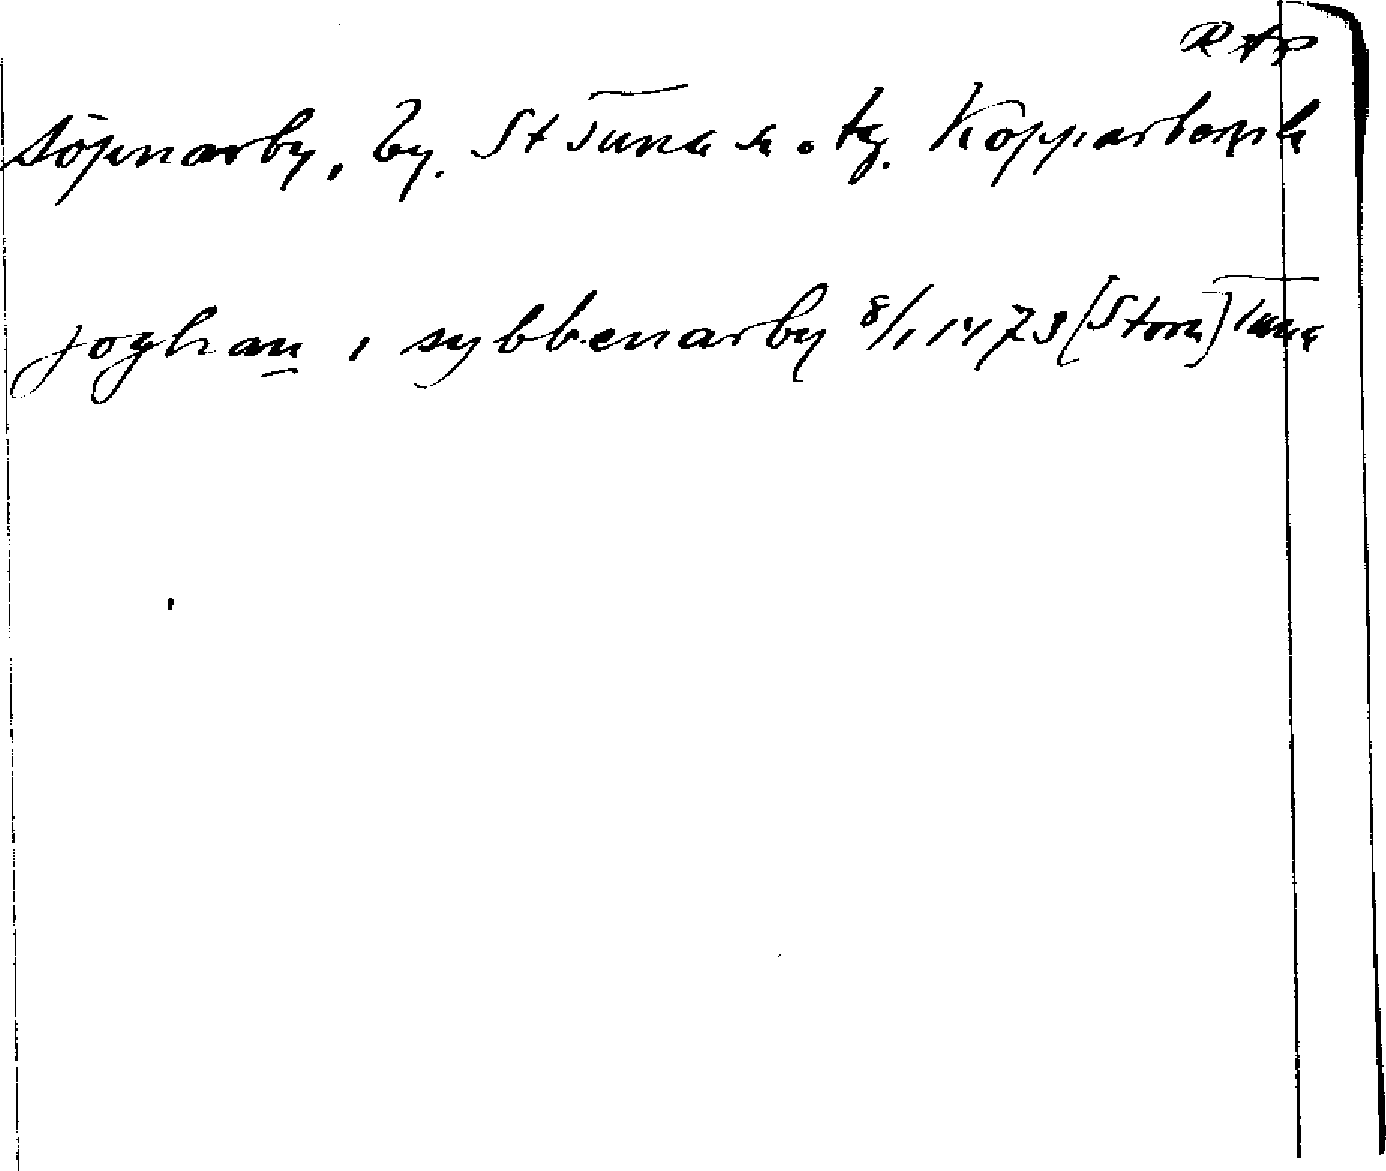 RAp
Söpnarby, by. St Tuna s. o. tg. Kopparbergs l
joghan i sybbenarby 8/1 1473 [Stora] Tuna